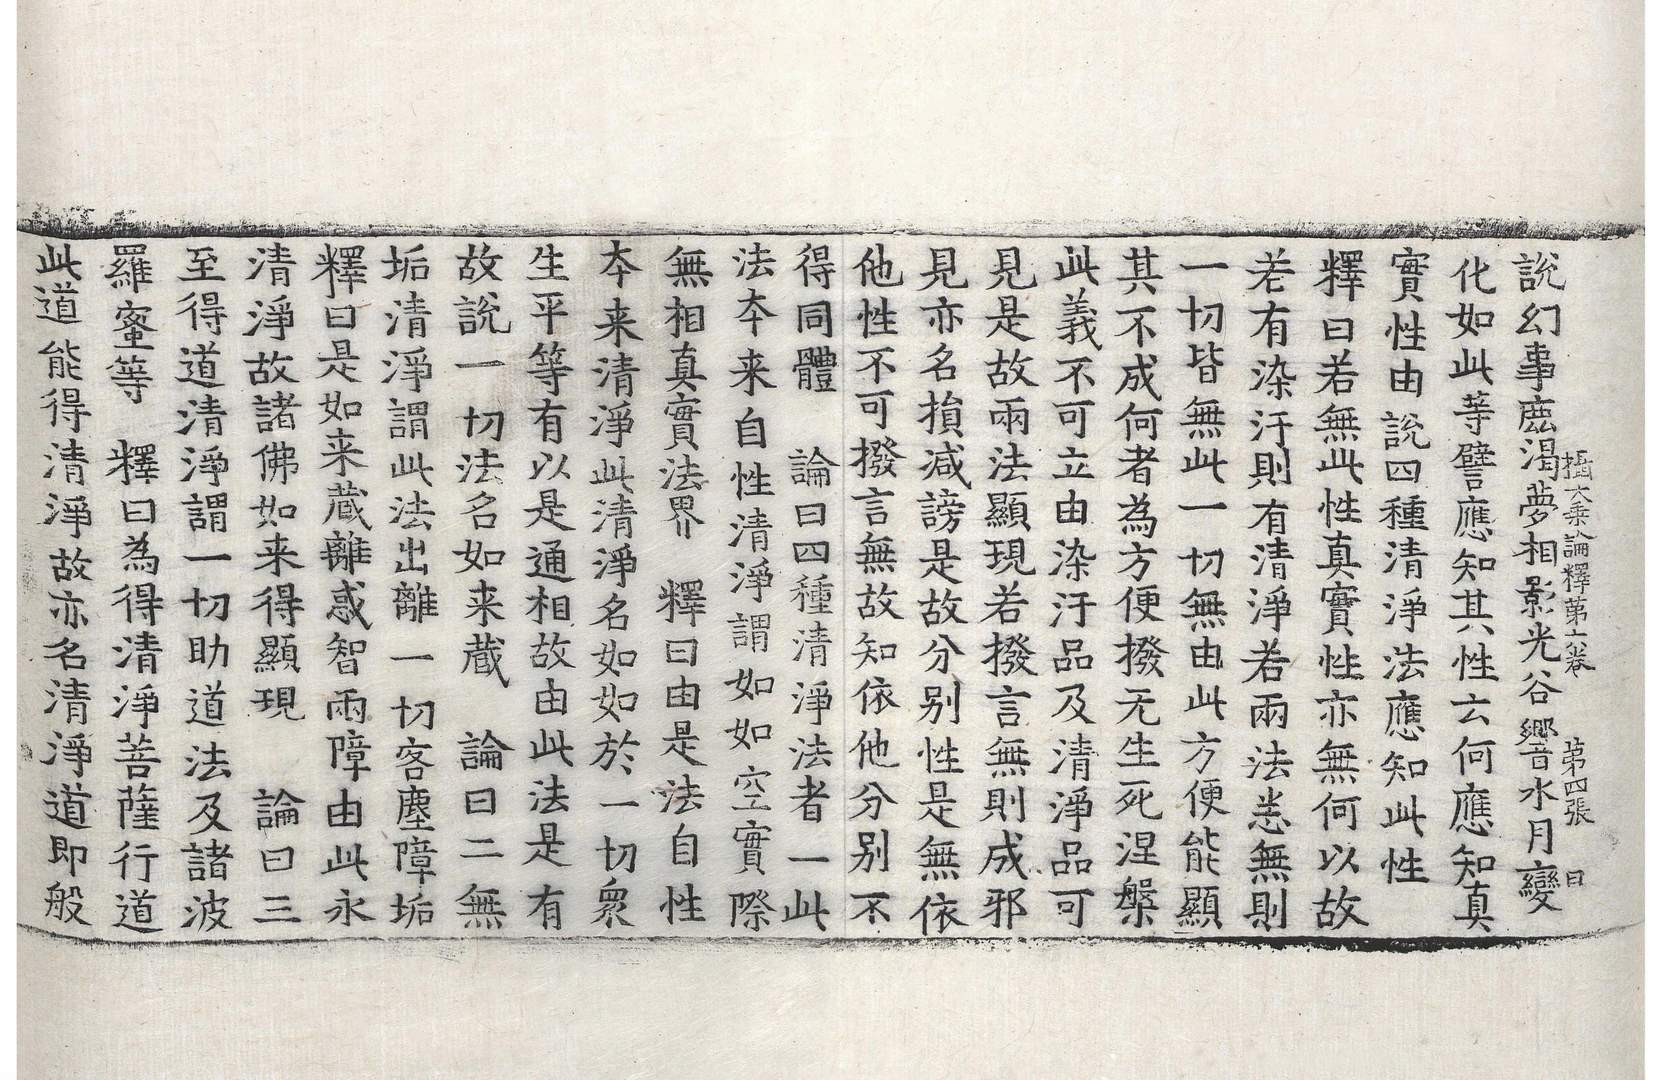 攝大乗論釋第六卷 第四張 日
說幻事鹿渴夢相影光谷響水月變
化如此等譬應知其性云何應知真
實性由說四種清淨法應知此性
釋曰若無此性真實性亦無何以故
若有染汙則有清淨若兩法悉無則
一切皆無此一切無由此方便能顯
其不成何者為方便撥无生死涅槃
此義不可立由染汙品及清淨品可
見是故兩法顯現若撥言無則成邪
見亦名損減謗是故分别性是無依
他性不可撥言無故知依他分别不
得同體 論曰四種清淨法者一此
法夲来自性清淨謂如如空實際
無相真實法界 釋曰由是法自性
夲来清淨此清淨名如如於一切衆
生平等有以是通相故由此法是有
故說一切法名如来蔵 論曰二無
垢清淨謂此法出離一切客塵障垢
釋曰是如来蔵離惑智兩障由此永
清淨故諸佛如来得顯現 論曰三
至得道清淨謂一切助道法及諸波
羅蜜等 釋曰為得清淨菩薩行道
此道能得清淨故亦名清淨道即般